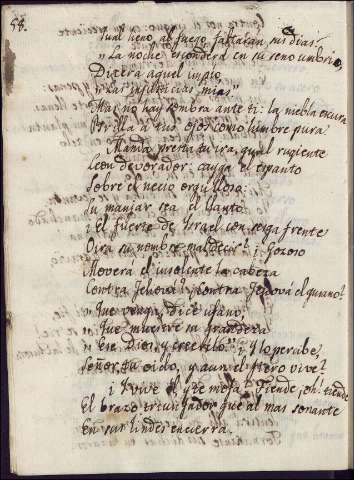 58.
Qual heno al fuego faltaran sus dias.
"La noche esconderá en su seno umbrio,
Dixera aquel impio
"Las injusticias mias"
Mas no hay sombra ante ti: la niebla escura
Brilla á tus ojos como lumbre pura.
Manda presta tu ira, qual rugiente
Leon devorador: cayga el espanto
Sobre el necio orgulloso:
Su manjar sea el llanto
¡El fuerte de Israel con serga frente
Oira su nombre maldecir? ¡Gozoso
Moverá el insolente la cabeza
Contra Jehová, contra Jehová el
"Que venga, dice ufano,
"Que muestre su grandeza
"En Dios y creerelo." ¡Y lo percibe,
Señor, tu oido, y aun el fiero vive?
¡Y vive él, y te mofa? Tiende, oh! tiende
El brazo triunfador que al mar sonante
En sus lindes encierra.